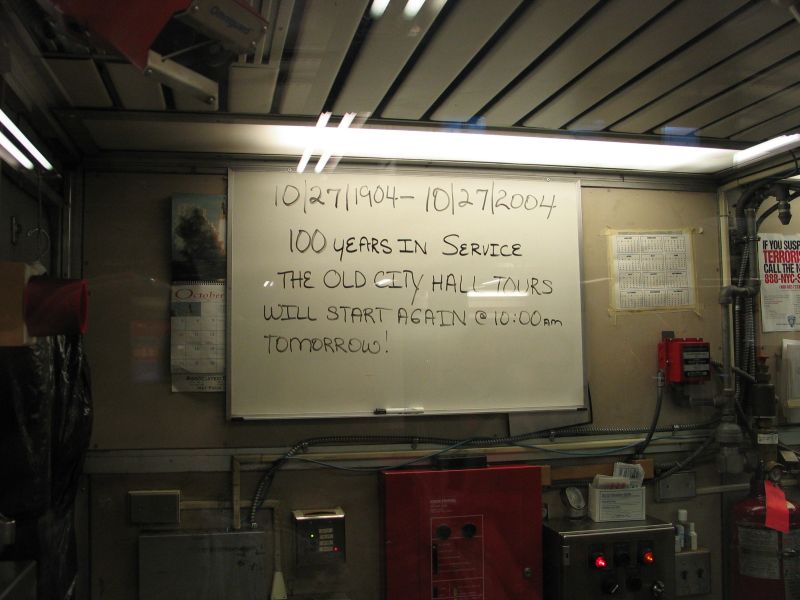 10/27/1904 - 10/27/2004
100 YEARS IN SERVICE
THE OLD CITY HALL TOURS
WILL START AGAIN @ 10:00 AM
TOMORROW!
October
IF YOU SUSP
TERRORIS
CALL THE N
888-NYC-S